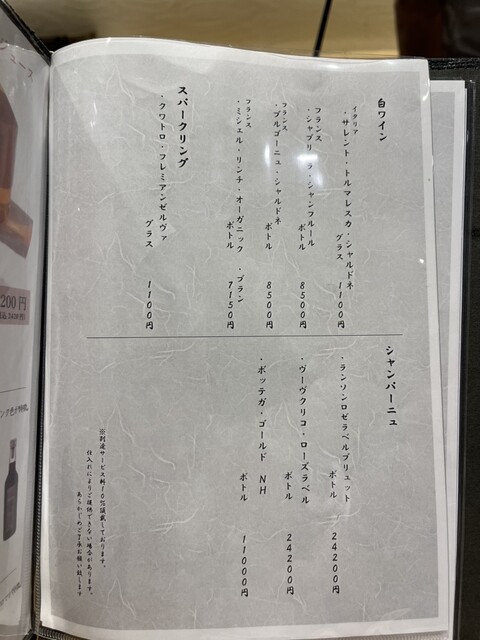 白ワイン
イタリア
・サレント・トルマレスカ・シャルドネ
グラス 1100円
フランス
・シャブリ ラ・シャンフルール
ボトル 8500円
フランス
・ブルゴーニュ・シャルドネ
ボトル 8500円
フランス
・ミシェル・リンチ・オーガニック・ブラン
ボトル 7150円
スパークリング
・クワトロ・フレミアンゼルヴァ
グラス 1100円
シャンパーニュ
・ランソンロゼラベルブリュット
ボトル 24200円
・ヴーヴクリコ・ローズラベル
ボトル 24200円
・ボッテガ・ゴールド NH
ボトル 11000円
※別途サービス料10%頂戴しております。
仕入れによりご提供できない場合があります。
あらかじめご了承お願い致します
ュース
200円